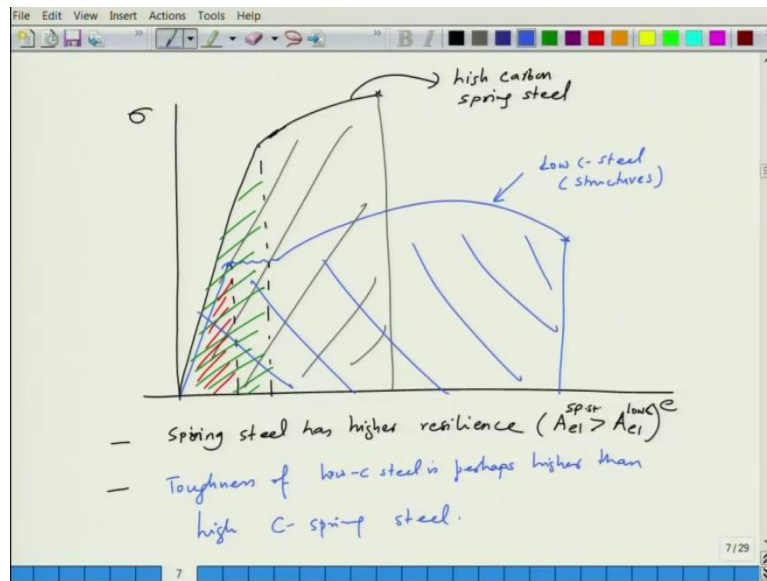 File Edit View Insert Actions Tools Help
high carbon
spring steel
σ
Low C-steel
(structures)
e
— Spring steel has higher resilience (A_el^sp.st > A_el^low C)
— Toughness of low-C steel is perhaps higher than
high C-spring steel.
7/29
7